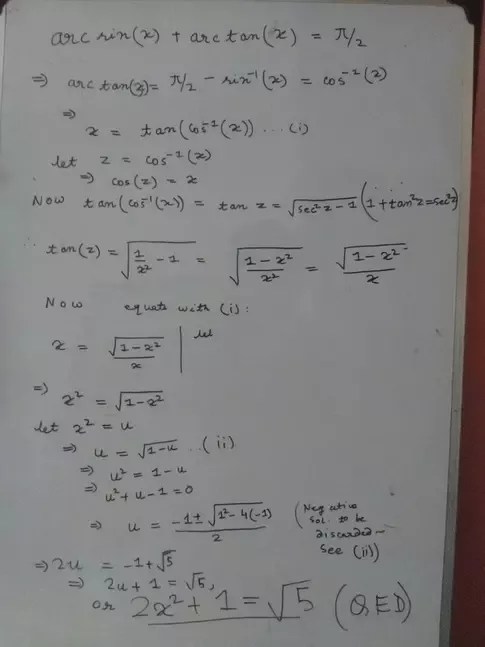 arc sin(x) + arc tan(x) = π/2
⇒ arc tan(x) = π/2 − sin⁻¹(x) = cos⁻¹(x)
⇒
x = tan(cos⁻¹(x)) ... (i)
let z = cos⁻¹(x)
⇒ cos(z) = x
Now tan(cos⁻¹(x)) = tan z = √(sec²z − 1) (1 + tan²z = sec²z)
∴ tan(z) = √(1/x² − 1) = √((1 − x²)/x²) = √(1 − x²)/x
Now equate with (i):
x = √(1 − x²)/x | let
⇒ x² = √(1 − x²)
let x² = u
⇒ u = √(1 − u) ... (ii)
⇒ u² = 1 − u
⇒ u² + u − 1 = 0
⇒ u = (−1 ± √(1² − 4(−1)))/2
(Negative
sol. to be
discarded ~
see (ii))
⇒ 2u = −1 + √5
⇒ 2u + 1 = √5,
or 2x² + 1 = √5 (QED)